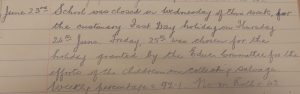 June 25th School was closed on Wednesday of this week, for
the customary Fast Day holiday on Thursday
24th June. Friday, 25th was chosen for the
holiday granted by the Educ. Committee for the
efforts of the children in collecting Salvage
Weekly percentage = 94.1 No. on Roll =